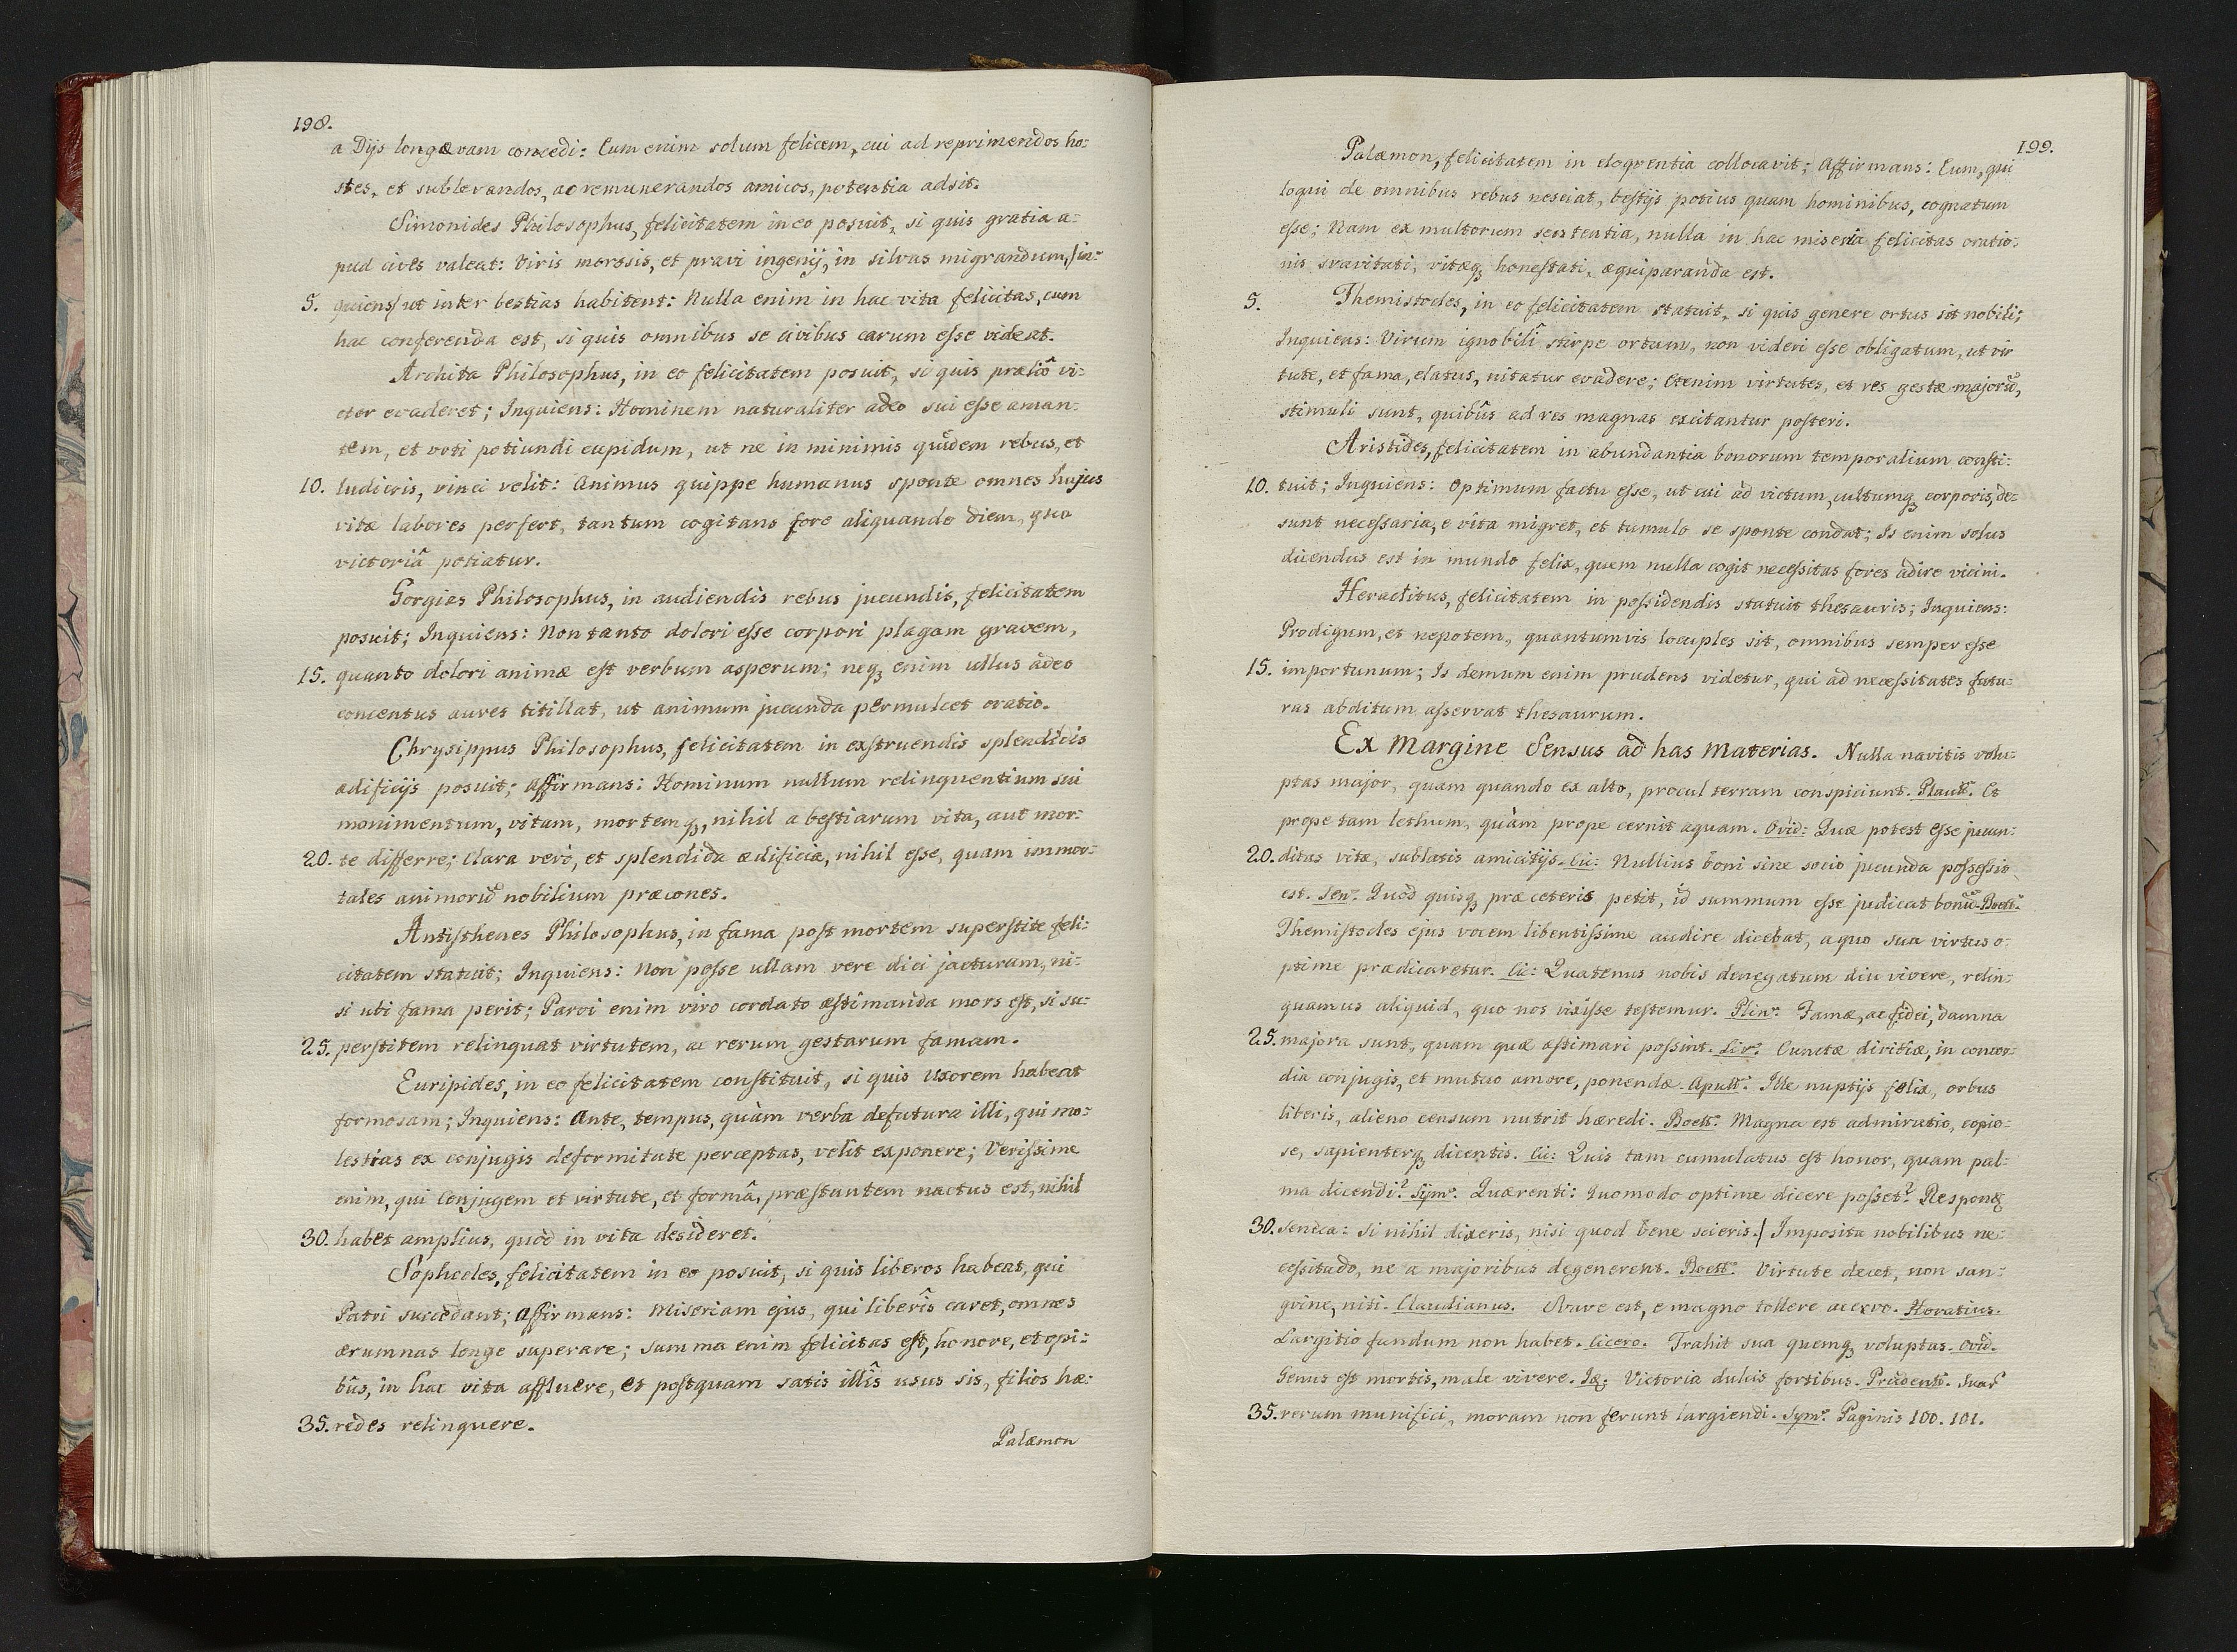 198.
a Dijs longævam concedi: Eum enim solum felicem, cui ad reprimendos ho:
stes, et sublevandos, ac remunerandos amicos, potentia adsit.
Simonides Philosophus, felicitatem in eo posuit, si quis gratia a:
pud cives valeat: Viris morosis, et pravi ingenij, in silvas migrandum, /in:
5. quiens/ ut inter bestias habitent: Nulla enim in hac vita felicitas, cum
hac conferenda est, si quis omnibus se civibus carum esse videat.
Archita Philosophus, in eo felicitatem posuit, si quis præliô vi:
ctor evaderet; Inquiens: Hominem naturaliter adeo sui esse aman:
tem, et voti potiundi cupidum, ut ne in minimis quidem rebus, et
10. ludicris, vinci velit: Animus quippe humanus sponte omnes hujus
vitæ labores perfert, tantum cogitans fore aliquando diem, quo
victoriâ potiatur.
Gorgias Philosophus, in audiendis rebus jucundis, felicitatem
posuit; Inquiens: Non tanto dolori esse corpori plagam gravem,
15. quanto dolori animæ est verbum asperum; neqȝ enim ullus adeo
concentus aures titillat, ut animum jucunda permulcet oratio.
Chrysippus Philosophus, felicitatem in exstruendis splendidis
ædificijs posuit; affirmans: Hominum nullum relinquentium sui
monimentum, vitam, mortemqȝ, nihil a bestiarum vita, aut mor:
20. te differre; Clara verò, et splendida ædificia, nihil esse, quam immor:
tales animorũ nobilium præcones.
Antisthenes Philosophus, in fama post mortem superstite feli:
citatem statuit; Inquiens: Non posse ullam vere dici jacturam, ni:
si ubi fama perit; Parvi enim viro cordato æstimanda mors est, si su:
25. perstitem relinquat virtutem, ac rerum gestarum famam.
Euripides, in eo felicitatem constituit, si quis Uxorem habeat
formosam; Inquiens: Ante, tempus, quàm verba defutura illi, qui mo:
lestias ex conjugis deformitate perceptas, velit exponere; Verissime
enim, qui Conjugem et virtute, et formâ, præstantem nactus est, nihil
30. habet amplius, quod in vita desideret.
Sophocles, felicitatem in eo posuit, si quis liberos habeat, qui
Patri succedant; Affirmans: Miseriam ejus, qui liberîs caret, omnes
ærumnas longe superare; summa enim felicitas est, honore, et opi:
bûs, in hac vita affluere, et postquam satis illîs usus sis, filios hæ:
35. redes relinquere.
Palæmon
199.
Palæmon, felicitatem in eloquentia collocavit; Affirmans: Eum, qui
loqui de omnibus rebus nesciat, bestijs potius quam hominibus, cognatum
esse; Nam ex multorum sententia, nulla in hac miseria felicitas oratio:
nis svavitati, vitæqȝ honestati, æquiparanda est.
5. Themistocles, in eo felicitatem statuit, si quis genere ortus sit nobili;
Inquiens: Virum ignobilî stirpe ortum, non videri esse obligatum, ut vir
tute, et fama, elatus, nitatur evadere; Etenim virtutes, et res gestæ majorũ,
stimuli sunt, quibûs ad res magnas excitantur posteri.
Aristides, felicitatem in abundantia bonorum temporalium consti:
10. tuit; Inquiens: Optimum factu esse, ut cui ad victum, cultumqȝ corporis, de:
sunt necessaria, e vita migret, et tumulo se sponte condat; Is enim solus
dicendus est in mundo felix, quem nulla cogit necessitas fores adire vicini.
Heraclitus, felicitatem in possidendis statuit thesauris; Inquiens:
Prodigum, et nepotem, quantumvis locuples sit, omnibus semper esse
15. importunum; Is demum enim prudens videtur, qui ad necessitates futu:
ras abditum asservat thesaurum.
Ex Margine Sensus ad has Materias. Nulla navitis volu:
ptas major, quam quando ex alto, procul terram conspiciunt. Plaut: Et
prope tam lethum, quàm prope cernit aquam. Ovid: Quæ potest esse jucun:
20. ditas vitæ, sublatis amicitijs. Cic: Nullius boni sine socio jucunda possessio
est. Sen: Quod quisqȝ præ ceteris petit, id summum esse judicat bonũ. Boet:
Themistocles ejus vocem libentissime audire dicebat, a quo sua virtus o:
ptime prædicaretur. Cic: Quatenus nobis denegatum diu vivere, relin:
quamus aliquid, quo nos vixisse testemur. Plin: Famæ, ac fidei, damna
25. majora sunt, quam quæ æstimari possint. Liv: Cunctæ divitiæ, in concor:
dia conjugis, et mutuo amore, ponendæ. Apull: Ille nuptijs felix, orbus
liberis, alieno censum nutrit hæredi. Boet: Magna est admiratio, copio:
se, sapienterqȝ dicentis. Cic: Quis tam cumulatus est honor, quam pal:
ma dicendi? Sym: Quærenti: Quomodo optime dicere posset? Respond:
30. Seneca: Si nihil dixeris, nisi quod bene scieris./ Imposita nobilibus ne:
cessitudo, ne a majoribus degenerent. Boet: Virtute decet, non san:
gvine, niti. Claudianus. Svave est, e magno tollere acervo. Horatius.
Largitio fundum non habet. Cicero. Trahit sua quemqȝ voluptas. Ovid.
Genus est mortis, male vivere. Id: Victoria dulcis fortibus. Prudent:
35. rerum munifici, moram non ferunt largiendi. Sym: Paginis 100. 101.